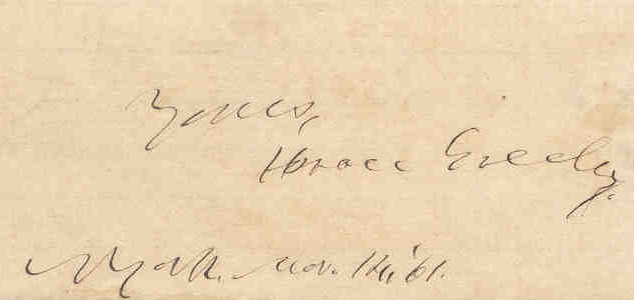 Yours,
Horace Greeley.
N. York, Nov. '61.